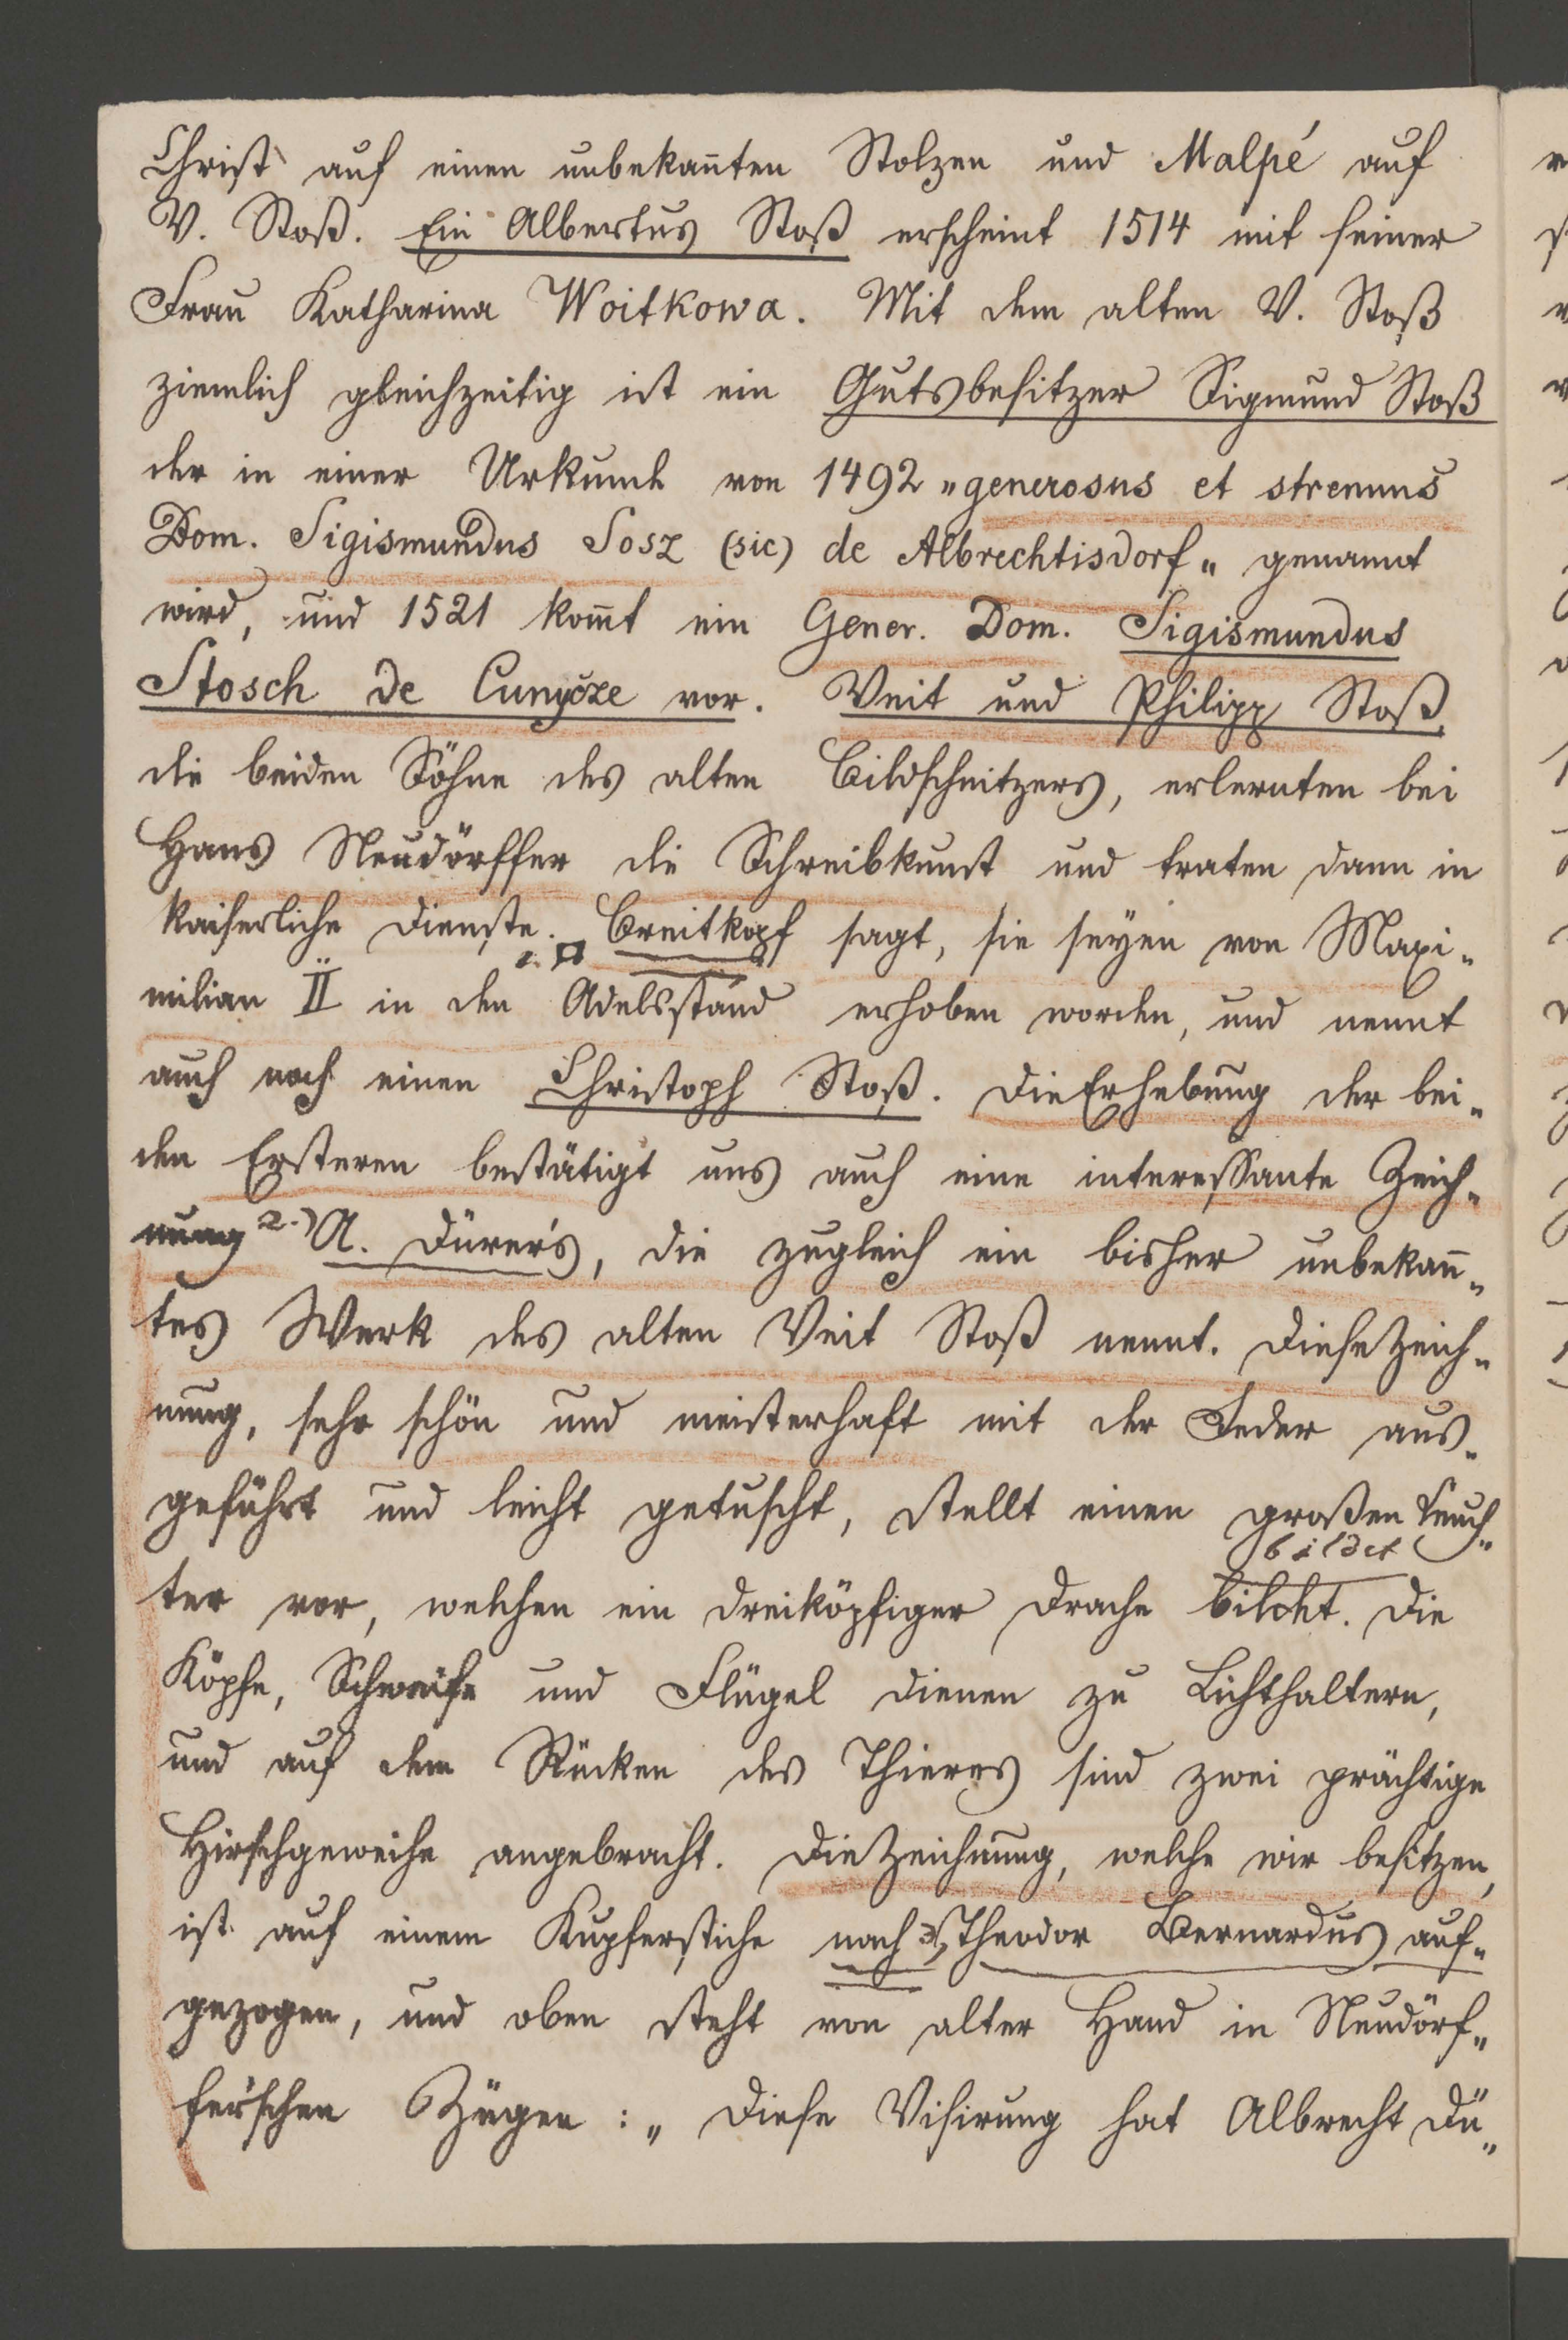 Christ auf einen unbekan̄ten Stolzen und Malpé auf
V. Stoß. Ein Albertus Stoß erscheint 1514 mit seiner
Frau Katharina Woitkowa. Mit dem alten V. Stoß
ziemlich gleichzeitig ist ein Gutsbesitzer Sigmund Stoß
der in einer Urkunde von 1492 „generosus et strenuus
Dom. Sigismundus Sosz (sic) de Albrechtisdorf„ genannt
wird, und 1521 kom̄t ein Gener. Dom. Sigismundus
Stosch de Cunyčze vor. Veit und Philipp Stoß,
die beiden Söhne des alten Bildschnitzers, erlernten bei
Hans Neudörffer die Schreibkunst und traten dann in
kaiserliche Dienste. Breitkopf sagt, sie seyen von Maxi„
milian II in den Adelsstand erhoben worden, und nennt
auch noch einen Christoph Stoß. Die Erhebung der bei„
den Ersteren bestätigt uns auch eine interessante Zeich„
nung 2.) A. Dürer's, die zugleich ein bisher unbekan̄„
tes Werk des alten Veit Stoß nennt. Diese Zeich„
nung, sehr schön und meisterhaft mit der Feder aus„
geführt und leicht getuscht, stellt einen großen Leuch„
bildet
ter vor, welchen ein dreiköpfiger Drache bildet. Die
Köpfe, Schweife und Flügel dienen zu Lichthaltern,
und auf dem Rücken des Thieres sind zwei prächtige
Hirschgeweihe angebracht. Die Zeichnung, welche wir besitzen,
ist auf einem Kupferstiche nach 3) Theodor Bernardus auf„
gezogen, und oben steht von alter Hand in Neudörf„
fer'schen Zügen: „Diese Visirung hat Albrecht Dü„